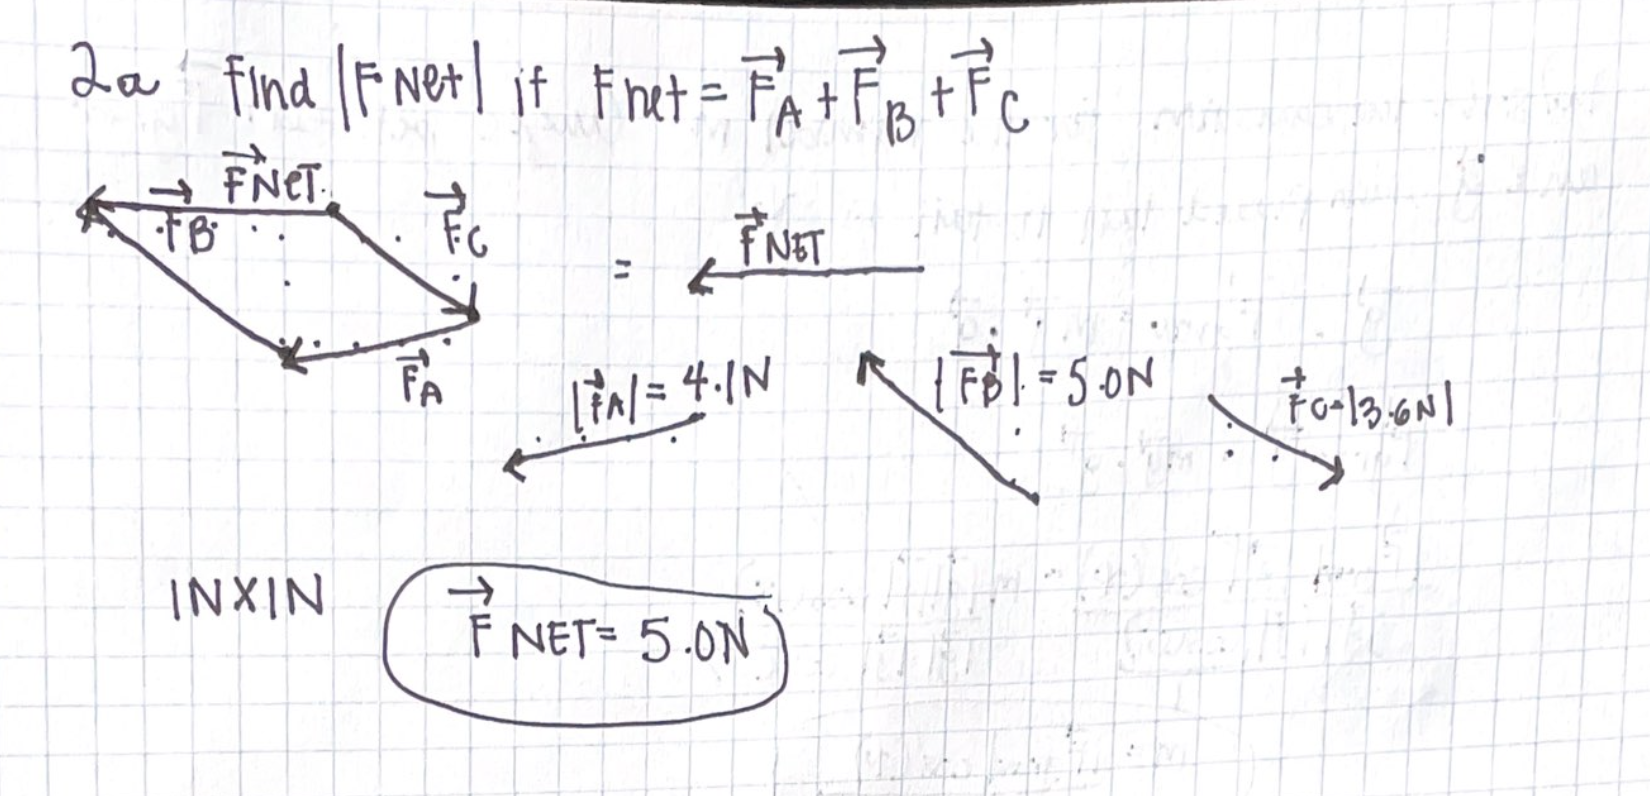 2a Find |F Net| if Fnet = F⃗A + F⃗B + F⃗C
F⃗NET
F⃗B
F⃗C
F⃗A
= F⃗NET
|F⃗A| = 4.1N
|F⃗B| = 5.0N
F⃗C=|3.6N|
1NX1N
F⃗ NET= 5.0N